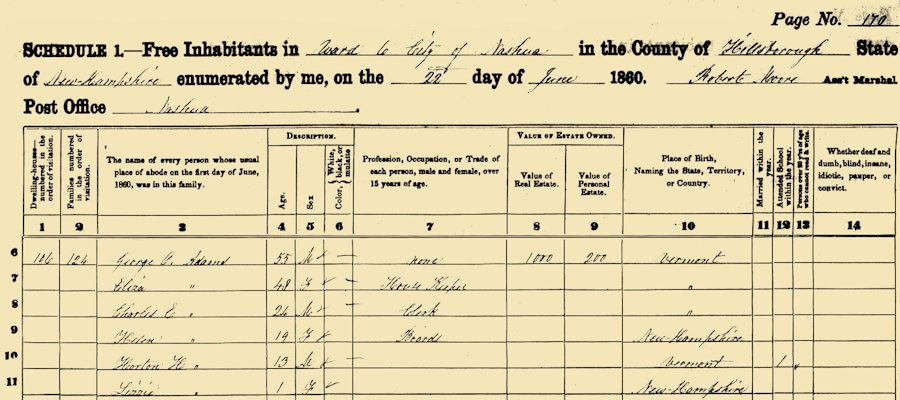 Page No. 170
SCHEDULE 1.—Free Inhabitants in Ward 6 City of Nashua in the County of Hillsborough State
of New-Hampshire enumerated by me, on the 22 day of June 1860. Robert Moore Ass't Marshal
Post Office Nashua.
Dwelling-houses—numbered in the order of visitation.
Families numbered in the order of visitation.
The name of every person whose usual place of abode on the first day of June, 1860, was in this family.
DESCRIPTION.
Age.
Sex
Color, White, black, or mulatto
Profession, Occupation, or Trade of each person, male and female, over 15 years of age.
VALUE OF ESTATE OWNED.
Value of Real Estate.
Value of Personal Estate.
Place of Birth, Naming the State, Territory, or Country.
Married within the year.
Attended School within the year.
Persons over 20 y'rs of age who cannot read & write.
Whether deaf and dumb, blind, insane, idiotic, pauper, or convict.
1 2 3 4 5 6 7 8 9 10 11 12 13 14
6 106 124 George C. Adams 55 M none 1000 200 Vermont
7 Eliza " 48 F House Keeper "
8 Charles E " 24 M Clerk "
9 Helen " 19 F Boards New-Hampshire
10 Horton H " 13 M Vermont 1
11 Lizzie " 1 F New-Hampshire